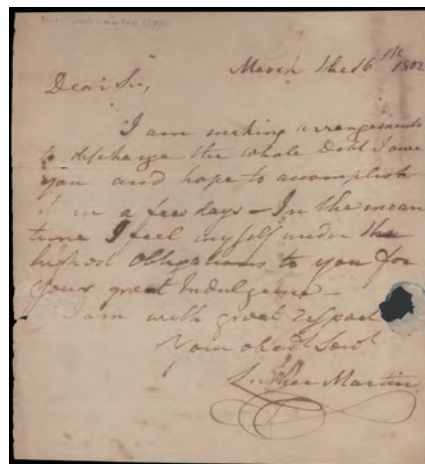 March the 16th 1802
Dear Sir,
I am making arrangements
to discharge the whole Debt I owe
you and hope to accomplish
it in a few days – In the mean
time I feel myself under the
highest Obligations to you for
your great Indulgence –
I am with great Respect
Your obedt Servt
Luther Martin